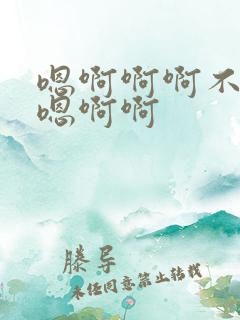 嗯啊啊啊不
嗯啊啊
滕导
未经同意禁止转载